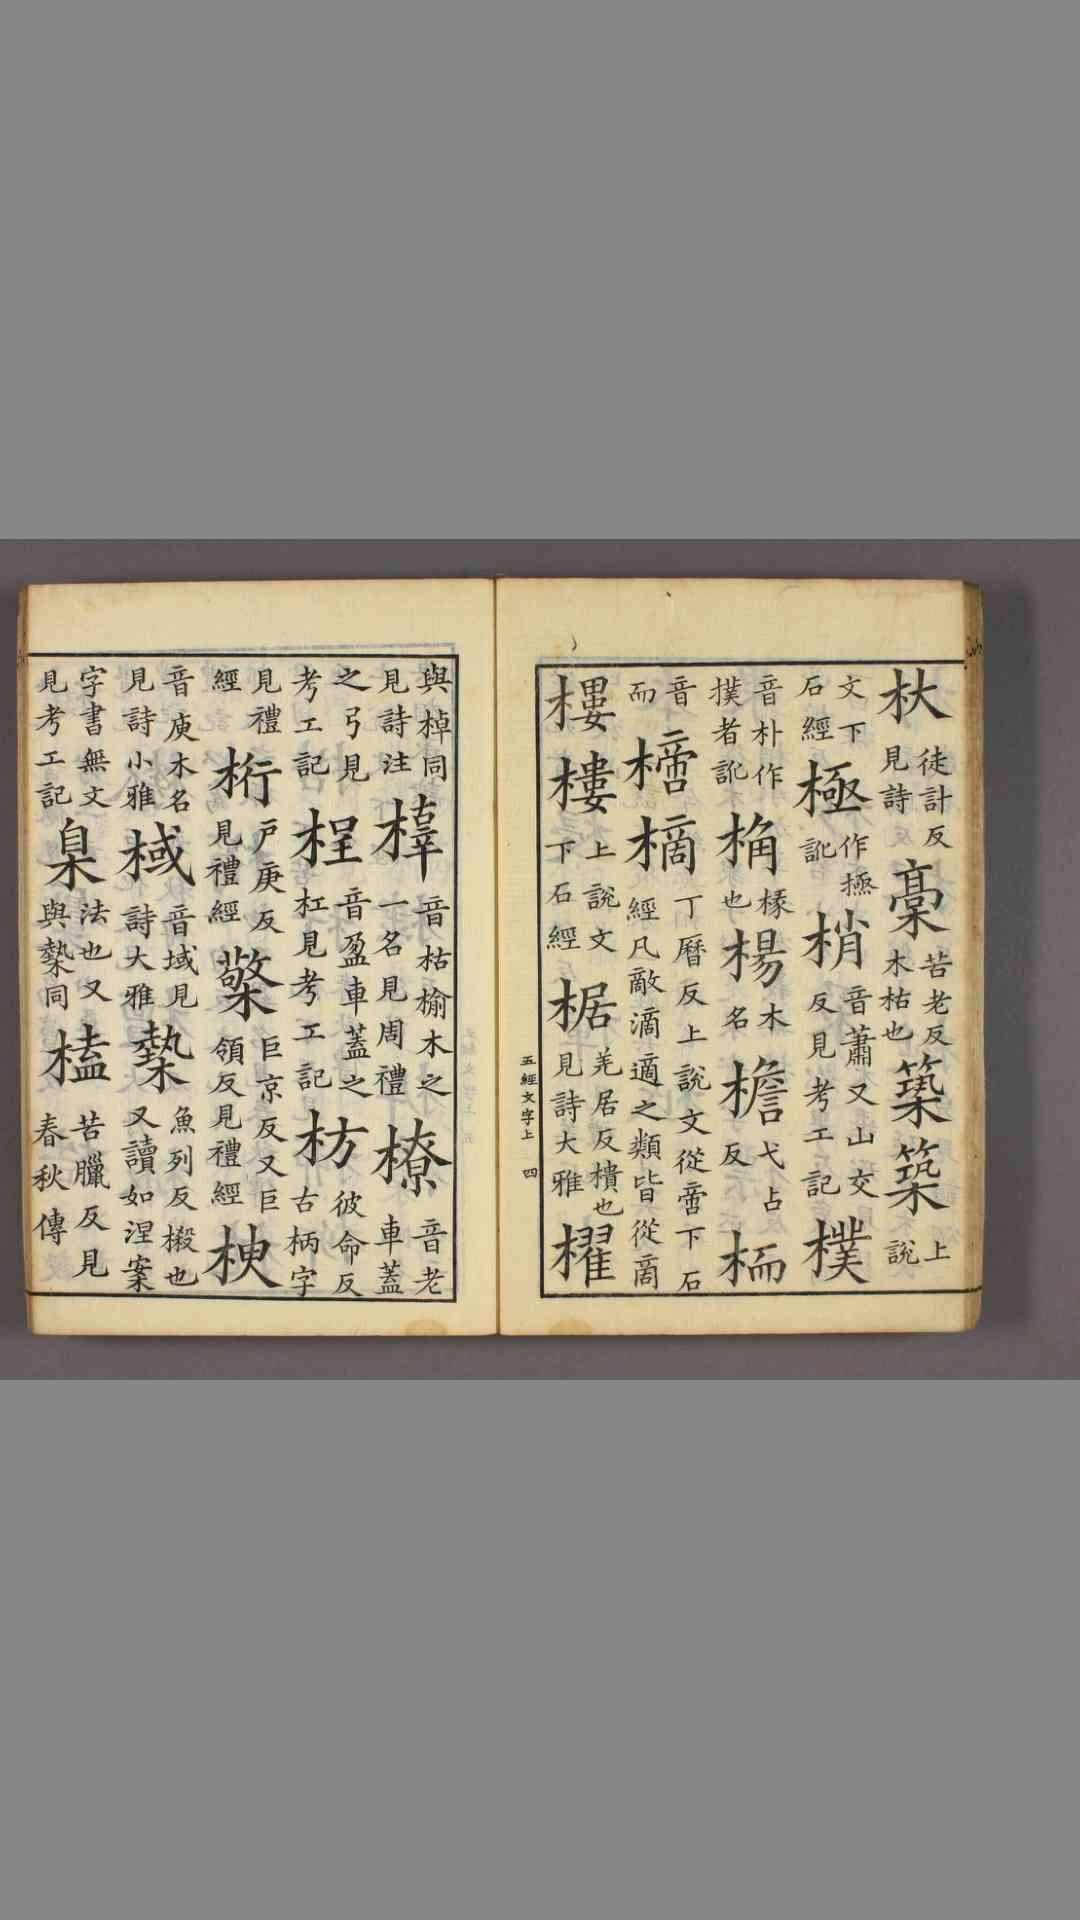 杕徒計反見詩槀苦老反木枯也築築上說
文下石經極作㮙訛梢音蕭又山交反見考工記樸
音朴作撲者訛桷榱也楊木名檐弋占反栭
音而樀丁歷反上說文從啇下石經凡敵滴適之類皆從商
樓樓上說文下石經椐羌居反樻也見詩大雅櫂
五經文字上 四
與棹同見詩注橭音枯榆木之一名見周禮橑音老車蓋
之弓見考工記桯音盈車蓋之杠見考工記枋彼命反古柄字
見禮經桁戶庚反見禮經檠巨京反又巨領反見禮經楰
音庾木名見詩小雅棫音域見詩大雅槷魚列反樧也又讀如涅案
字書無文見考工記臬法也又與槷同榼苦臘反見春秋傳